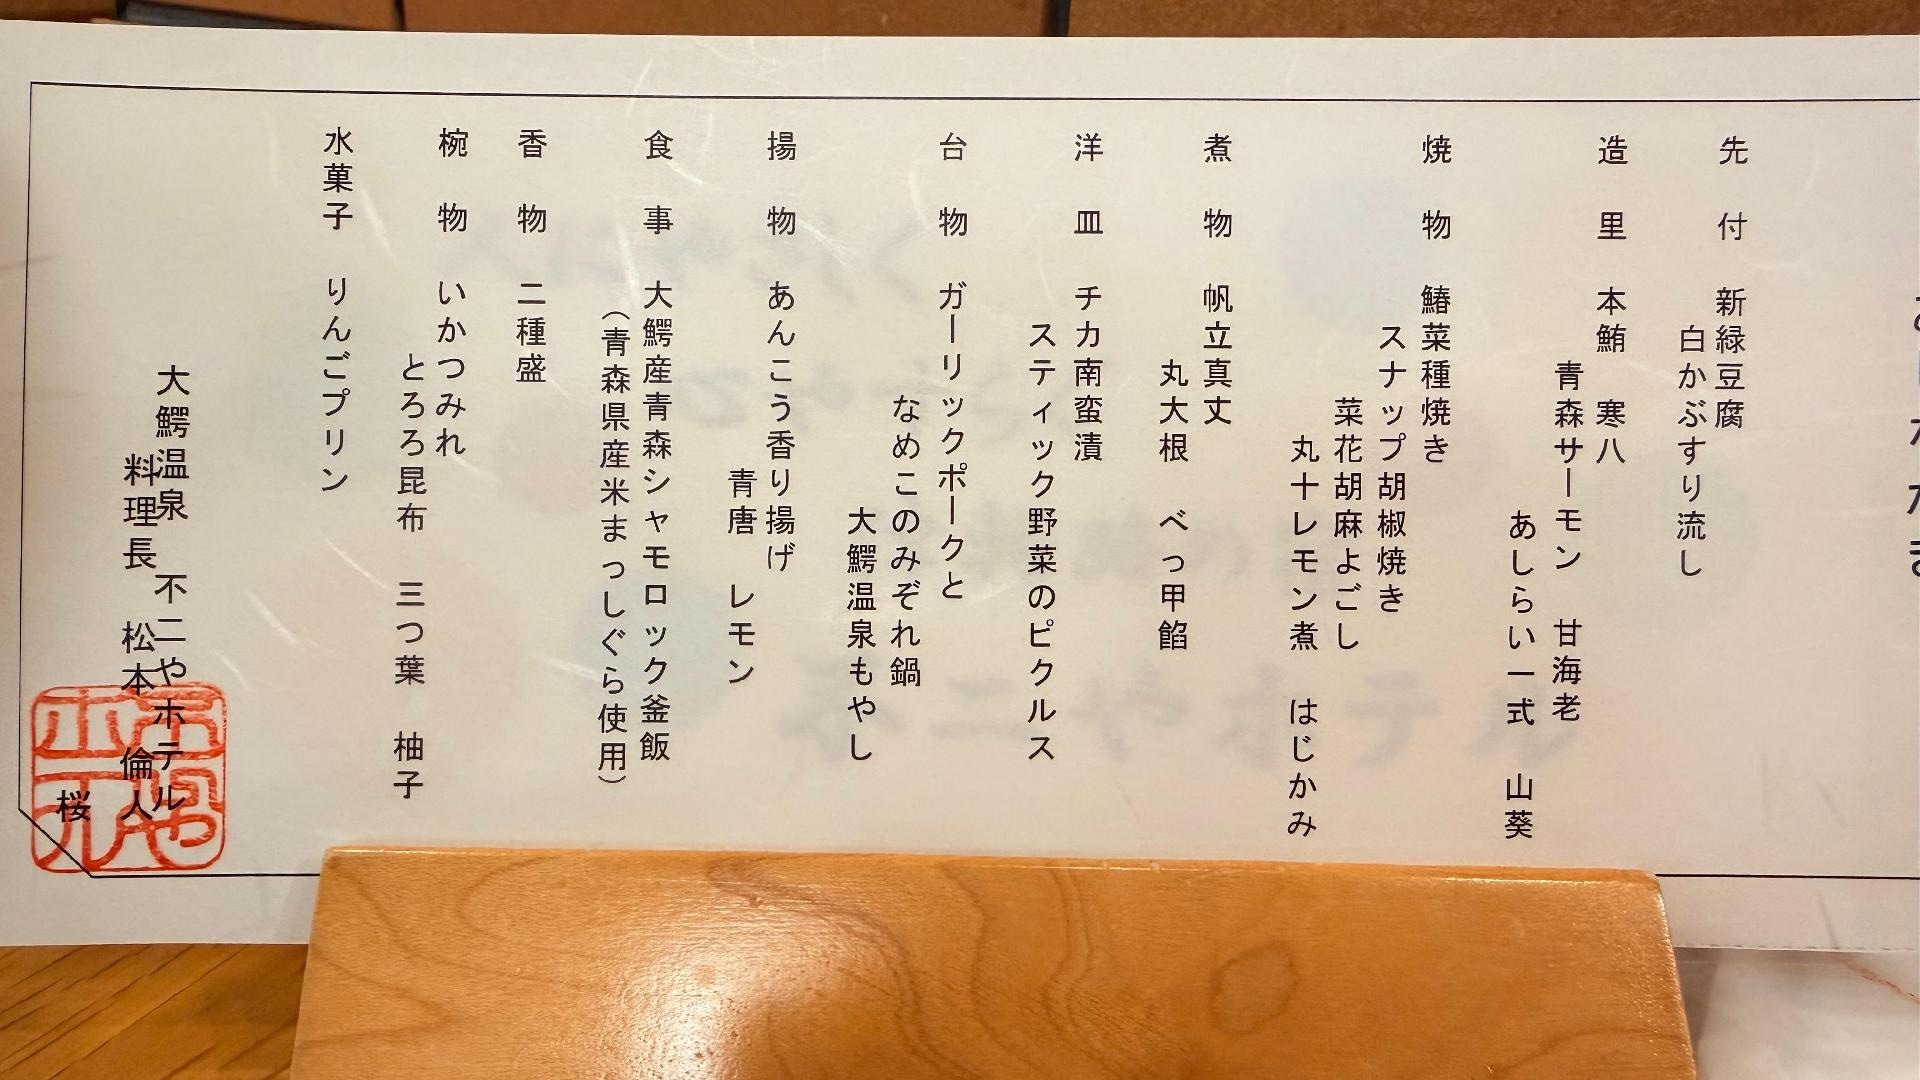 おしながき
先付 新緑豆腐
白かぶすり流し
造里 本鮪 寒八
青森サーモン 甘海老
あしらい一式 山葵
焼物 鰆菜種焼き
スナップ胡椒焼き
菜花胡麻よごし
丸十レモン煮 はじかみ
煮物 帆立真丈
丸大根 べっ甲餡
洋皿 チカ南蛮漬
スティック野菜のピクルス
台物 ガーリックポークと
なめこのみぞれ鍋
大鰐温泉もやし
揚物 あんこう香り揚げ
青唐 レモン
食事 大鰐産青森シャモロック釜飯
（青森県産米まっしぐら使用）
香物 二種盛
椀物 いかつみれ
とろろ昆布 三つ葉 柚子
水菓子 りんごプリン
大鰐温泉 不二やホテル
料理長 松本 倫人
桜